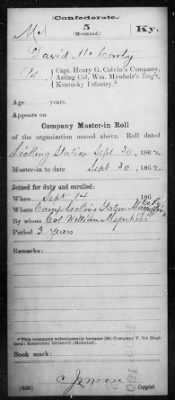 Confederate.
Mc 5 Ky.
(Mounted.)
David McCarty
Pvt, Capt. Henry G. Calvin's Company,
Acting Col. Wm. Mynheir's Reg't,
Kentucky Infantry.*
Age years.
Appears on
Company Muster-in Roll
of the organization named above. Roll dated
Licking Station Sept 20, 1862
Muster-in to date Sept 20, 1862
Joined for duty and enrolled:
When Sept 14, 186
Where Camp Licking Station
By whom Col. William Mynheir
Period 3 years
Remarks:
*This company subsequently became (2d) Company F, 5th Regi-
ment Kentucky Infantry (Mounted).
Book mark:
Copyist.